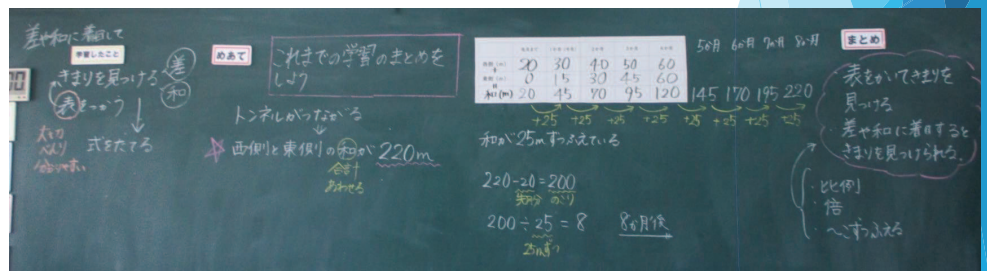 差や和に着目して
学習したこと
きまりを見つける 差 和
表をつかう
大切
べんり
分かりやすい
式をたてる
めあて
これまでの学習のまとめを
しよう
トンネルがつながる
西側と東側の和が 220m
合計
あわせる
20 30 40 50 60
0 15 30 45 60
和(m) 20 45 70 95 120 145 170 195 220
5か月 6か月 7か月 8か月
+25 +25 +25 +25 +25 +25 +25 +25
和が25mずつふえている
220-20=200
のこり
200÷25=8 8か月後
25mずつ
まとめ
表をかいてきまりを
見つける
差や和に着目すると
きまりを見つけられる。
・比例
・倍
・〜ずつふえる